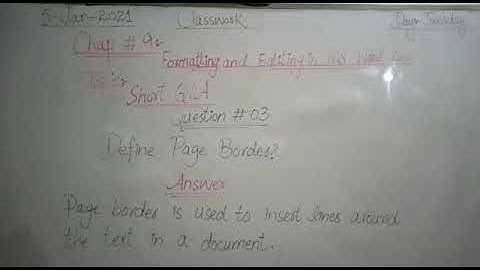 5-Jan-2021 Classwork Day:- Tuesday
Chap # 9:-
Formatting and Editing in MS Word
Short Q/A
Question # 03
Define Page Border?
Answer
Page border is used to insert lines around
the text in a document.